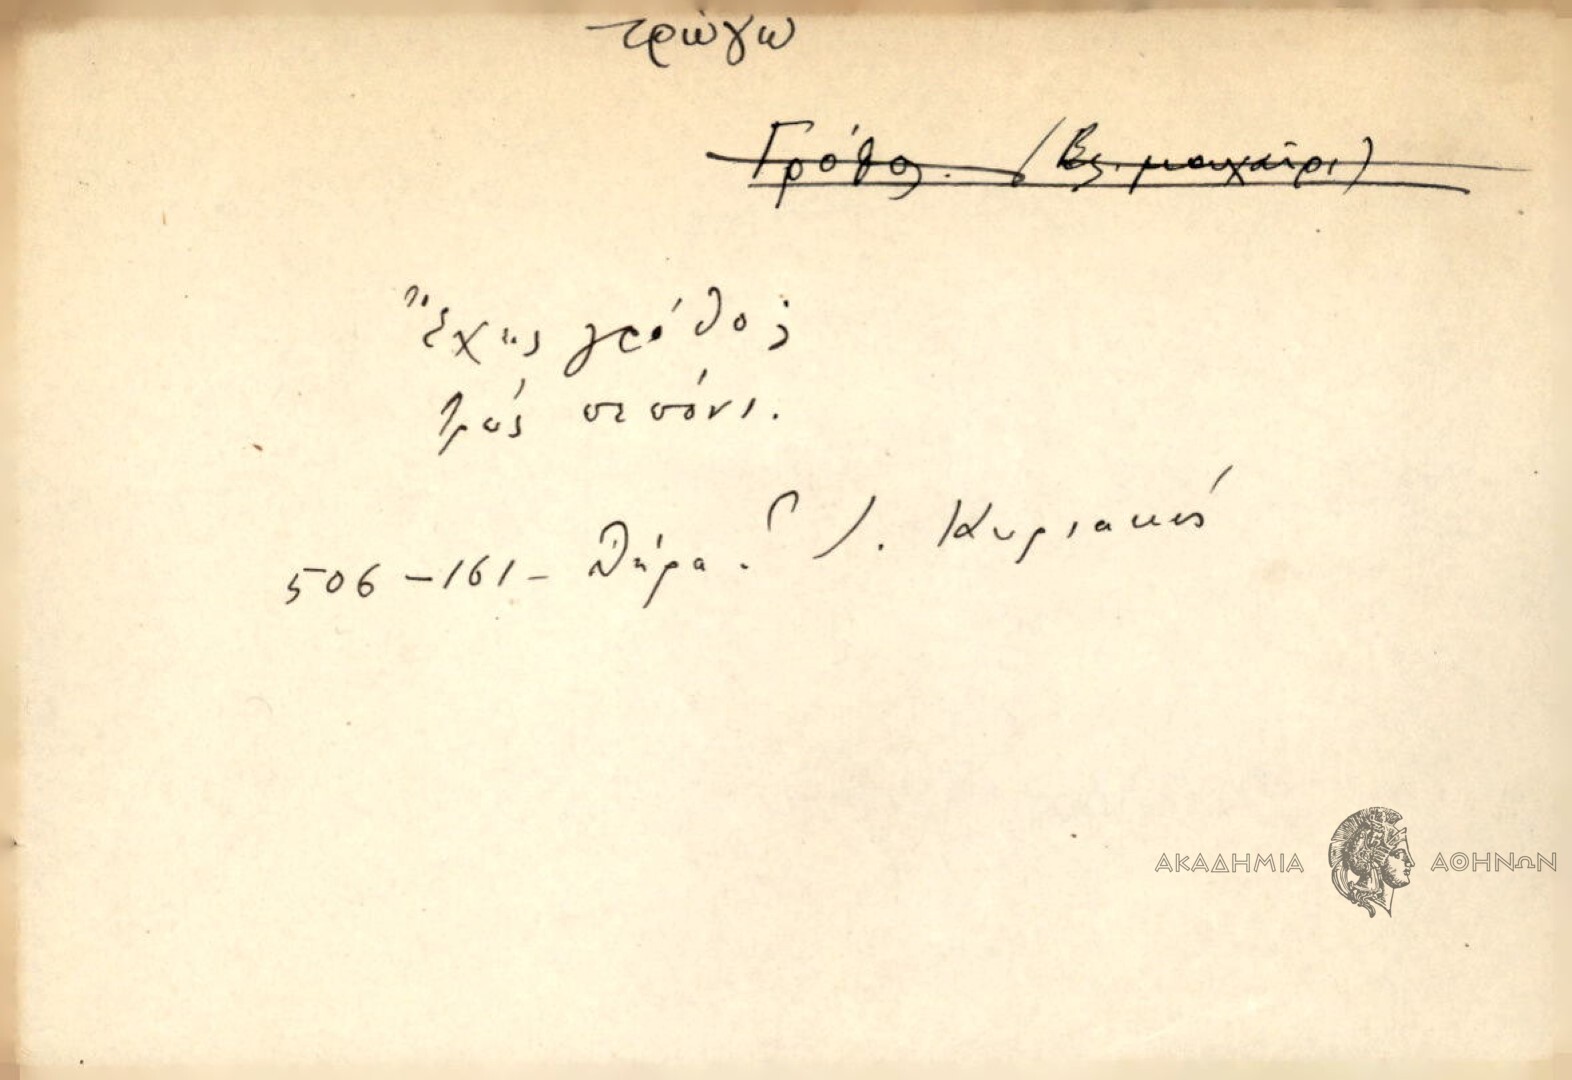 τρώγω
Γρόθος. (Βλ. μαχαίρι)
Ἔχεις γρόθο;
τρώς πεπόνι.
506-161- Θήρα. Γ Ι. Κυριακός
ΑΚΑΔΗΜΙΑ ΑΘΗΝΩΝ